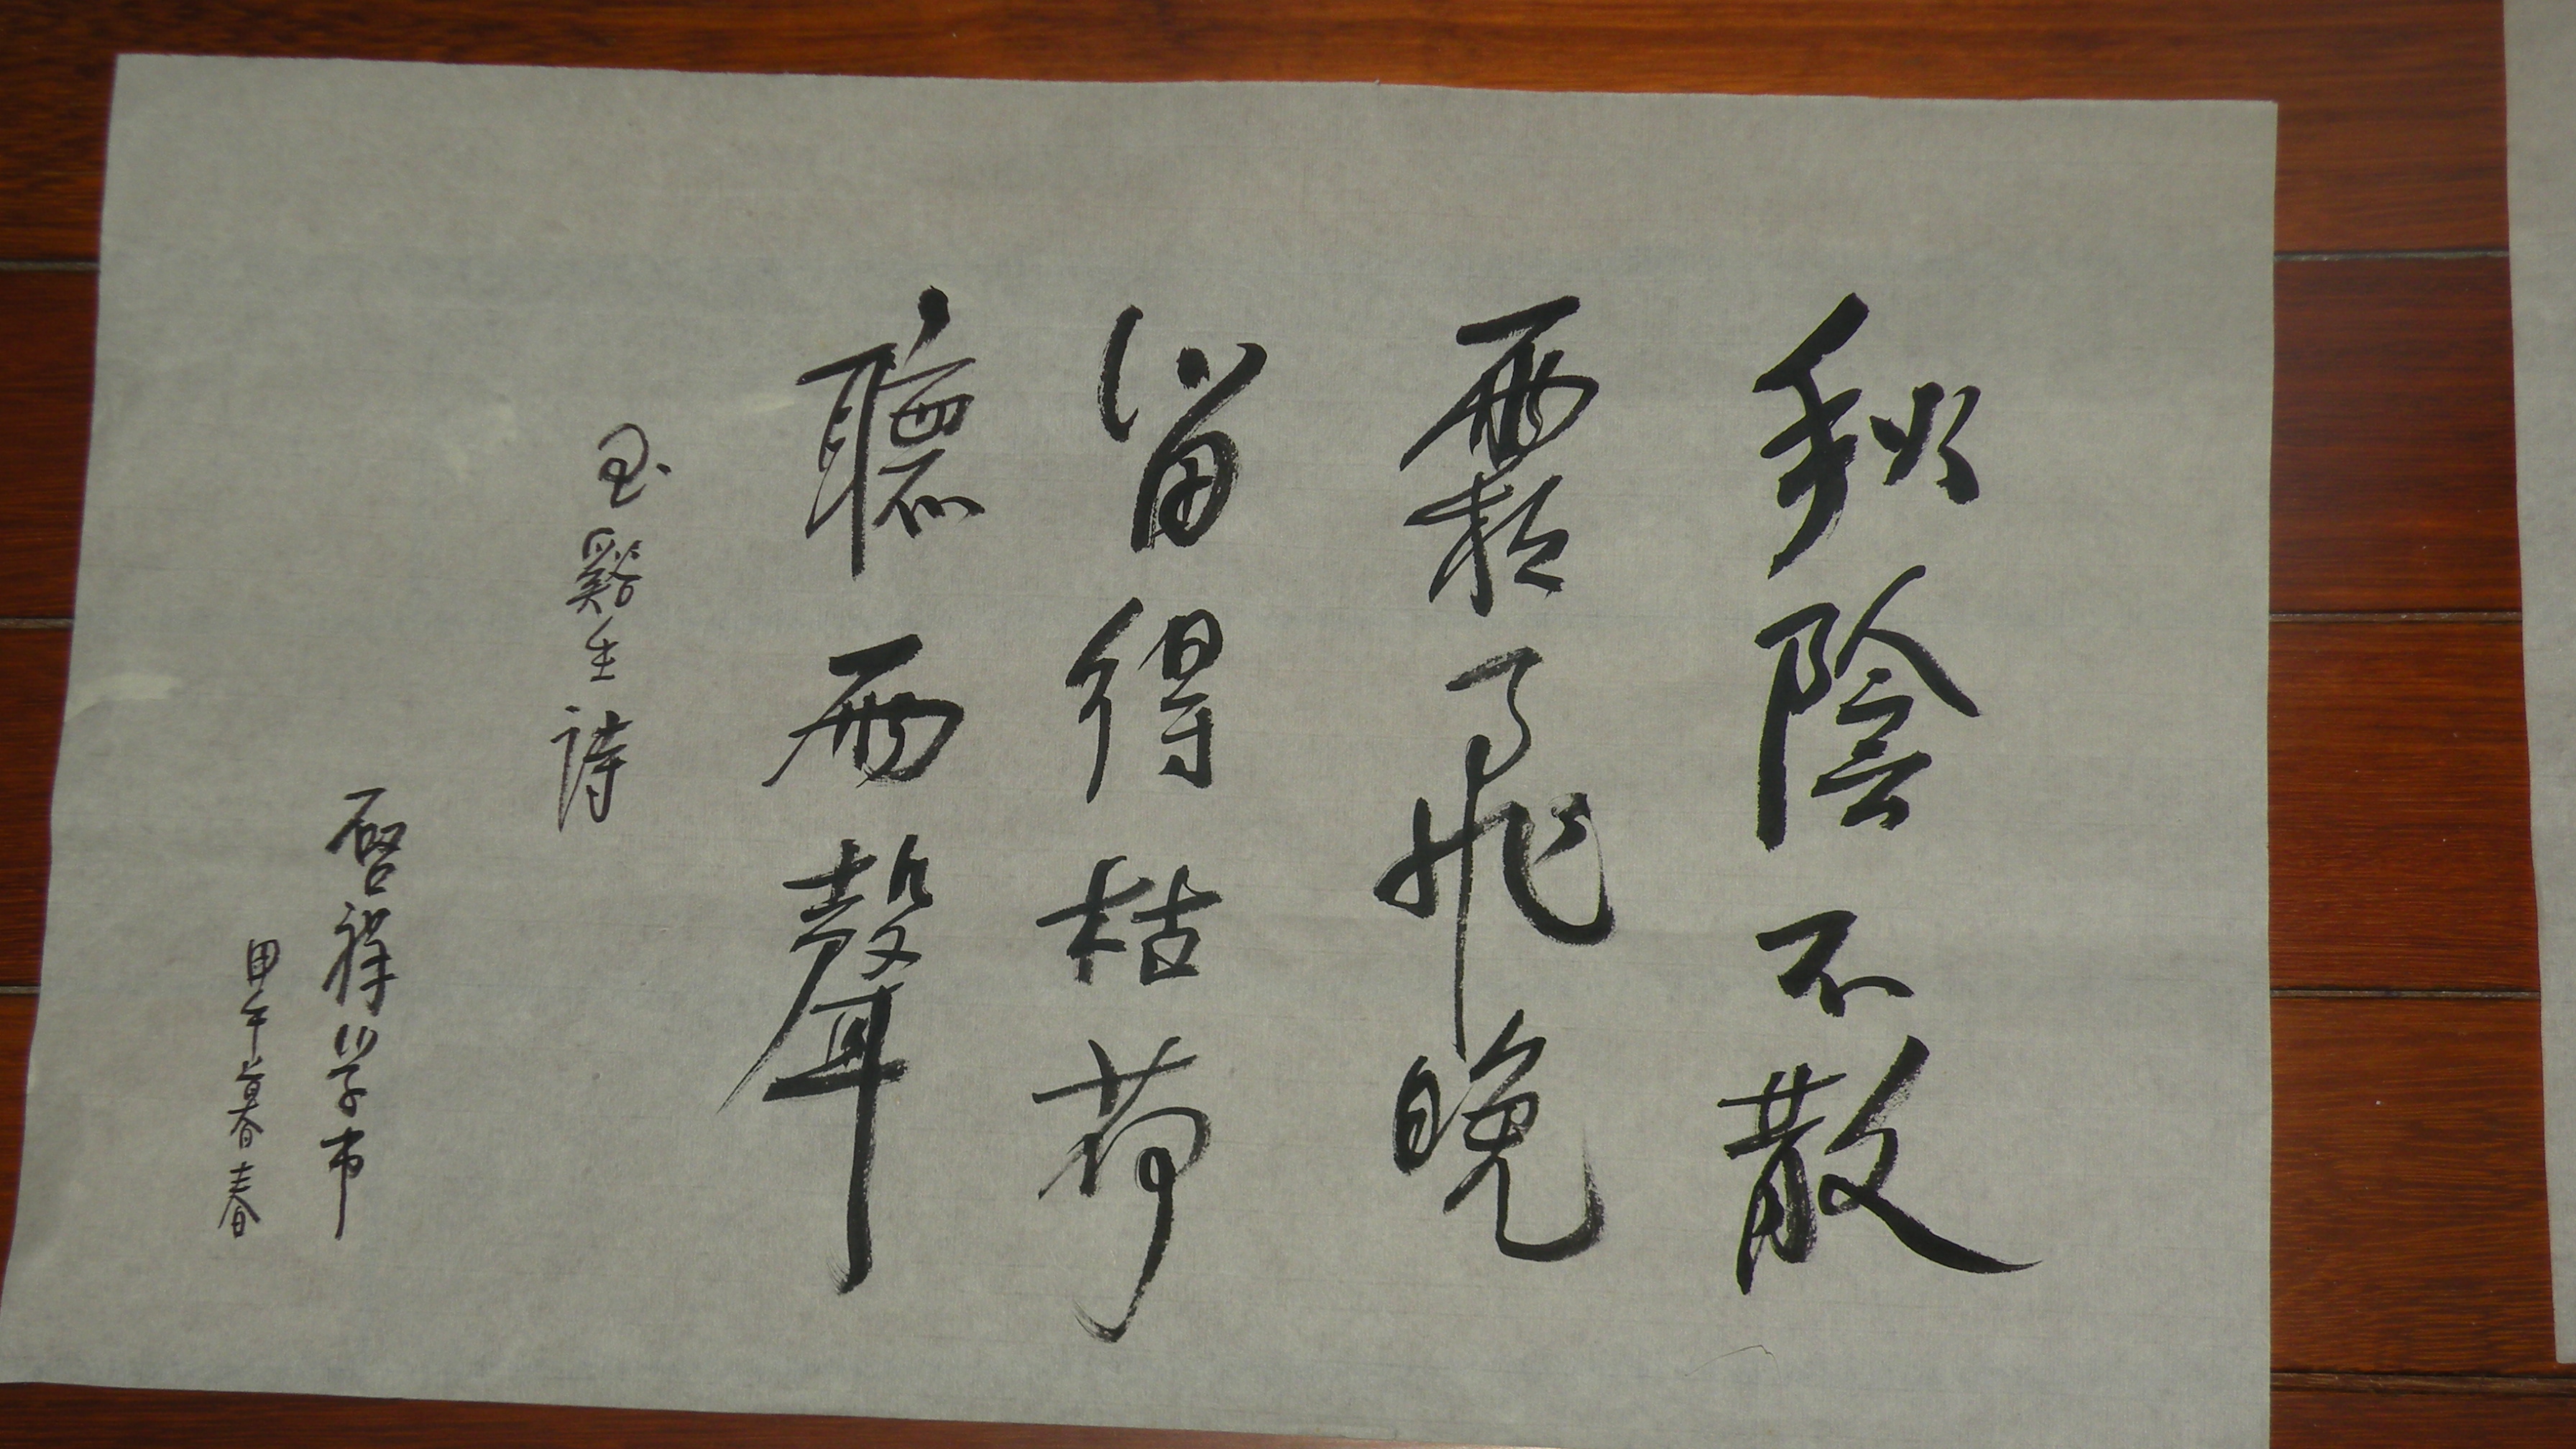 秋陰不散
霜飛晚
留得枯荷
聽雨聲
玉谿生詩
啓禪學書
甲午暮春